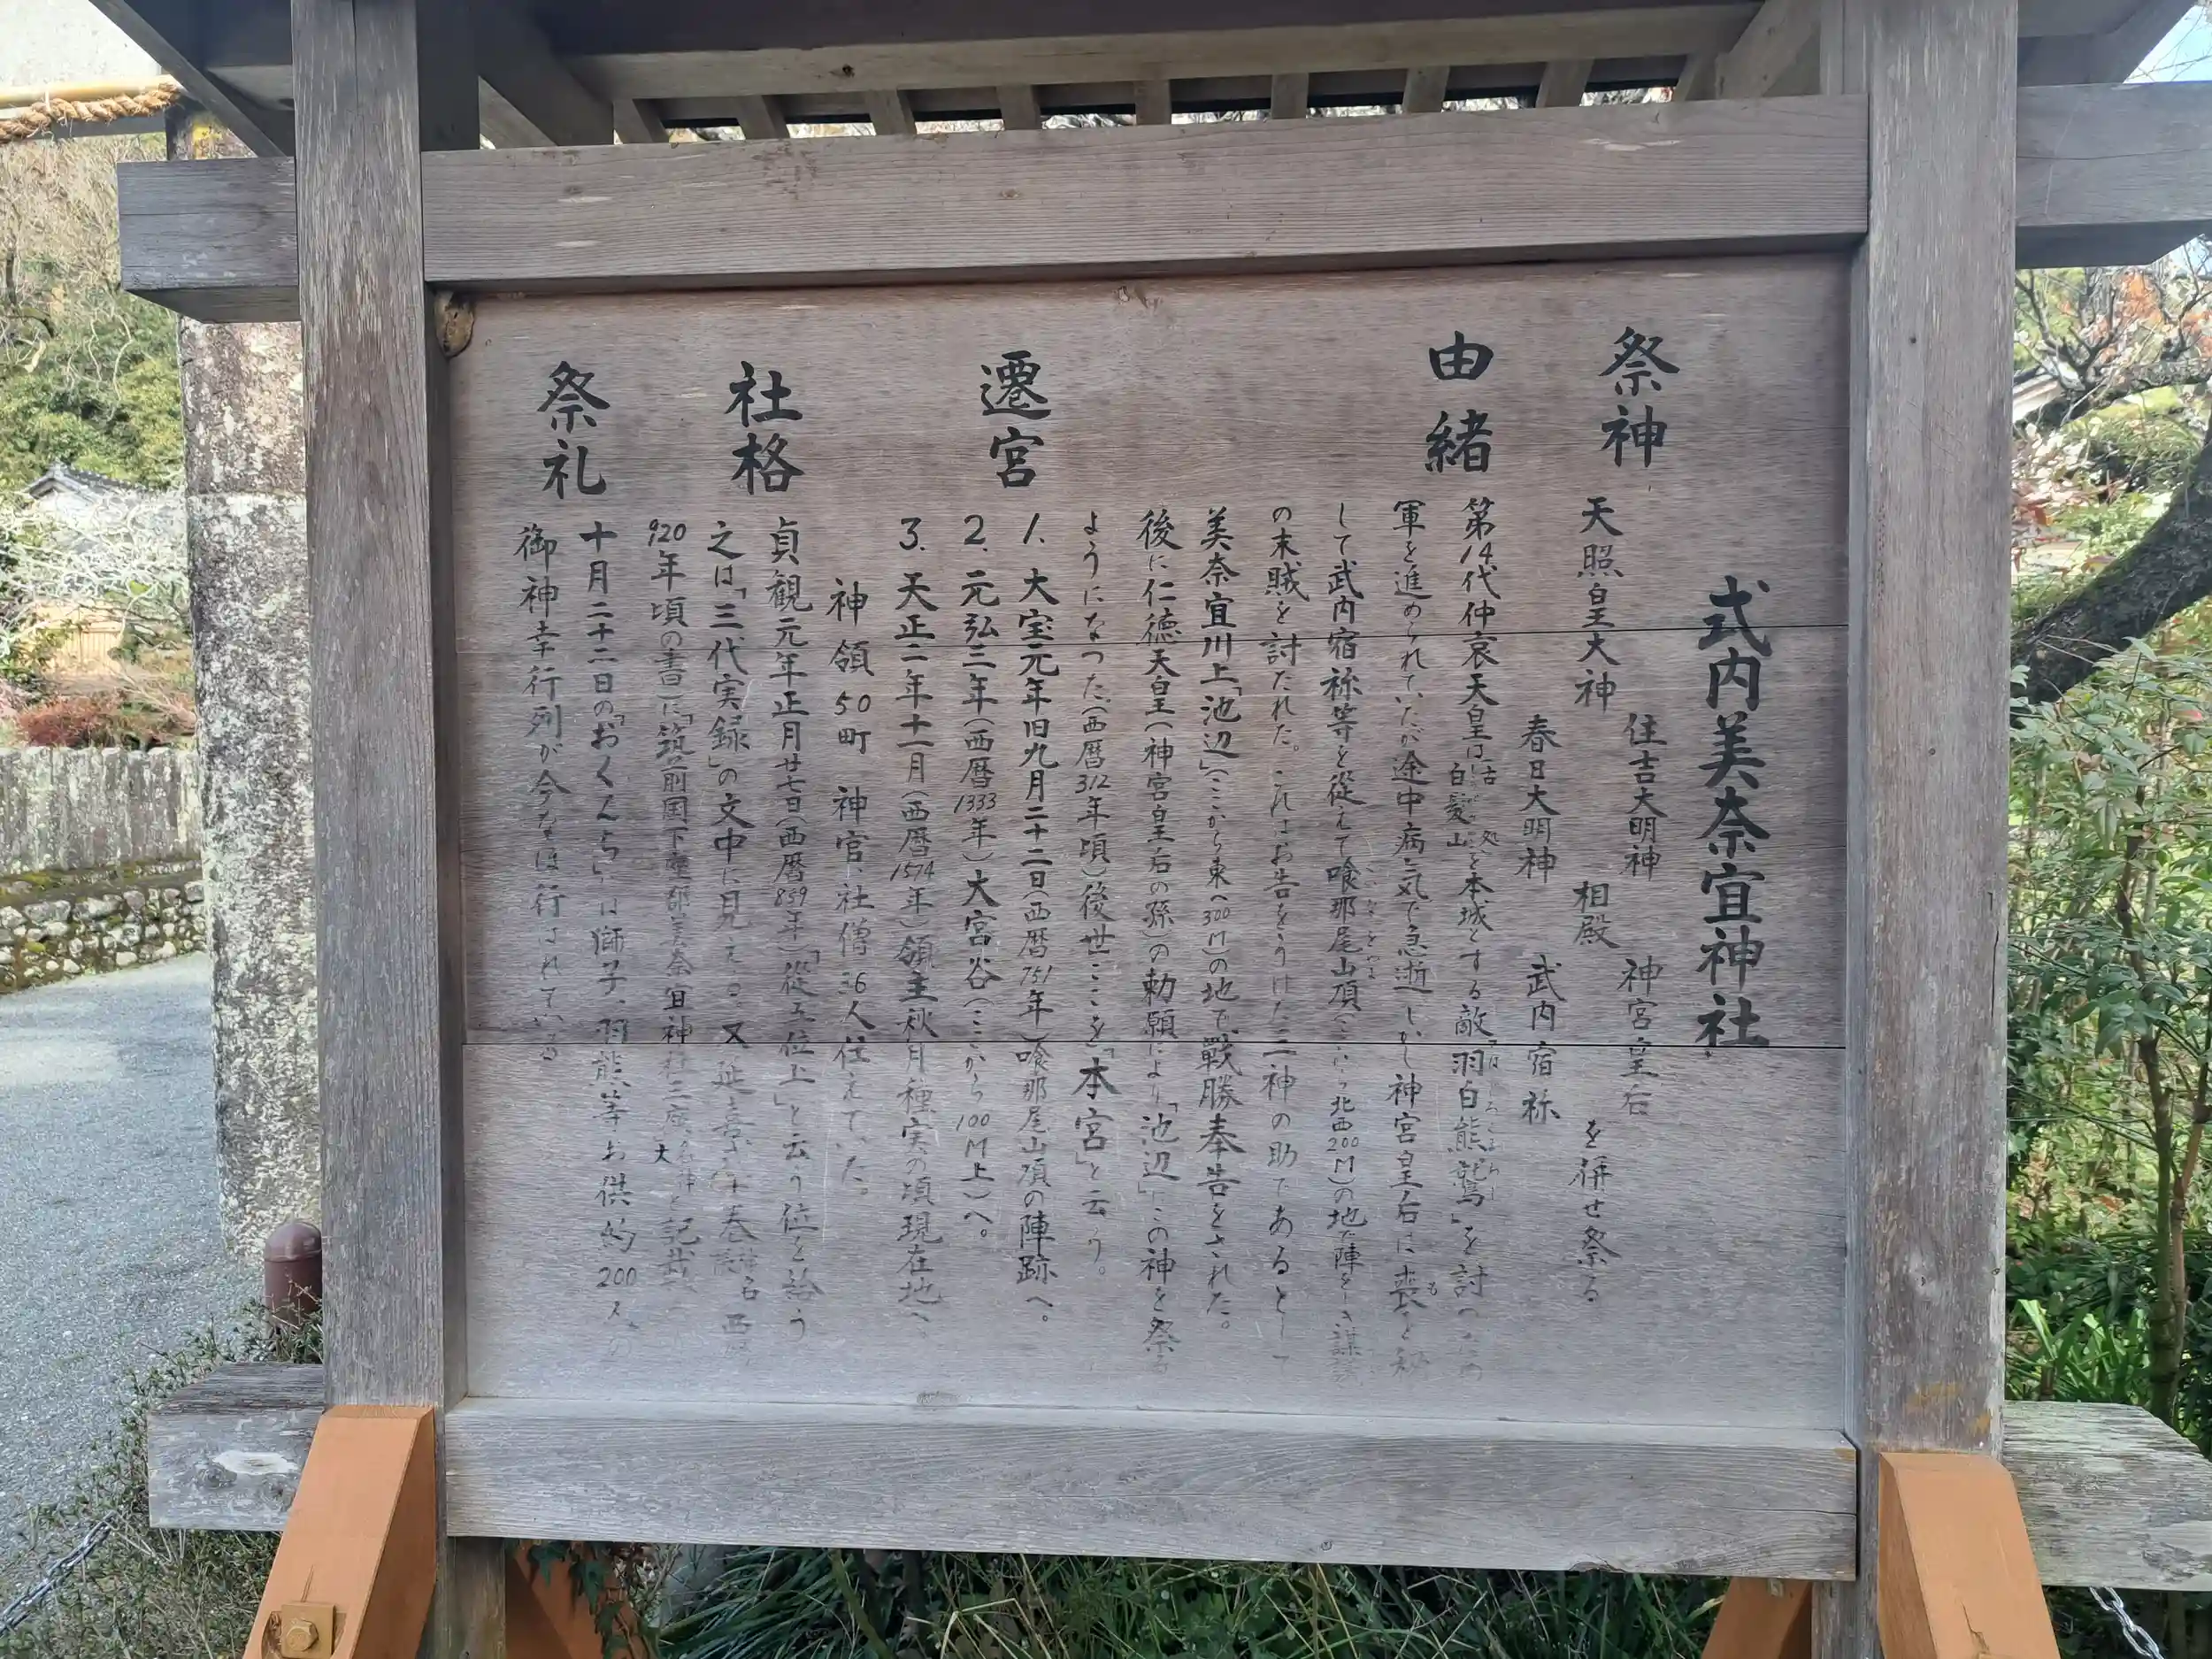 式内美奈宜神社
祭神
天照皇大神
住吉大明神
春日大明神
相殿
神宮皇后
武内宿祢
を併せ祭る
由緒
第14代仲哀天皇は古処
白髪山を本城とする敵「羽白熊鷲」を討つため
軍を進められていたが途中病気で急逝しかし神宮皇后は喪を秘
して武内宿祢等を従えて喰那尾山頂(ここから北西200M)の地で陣をしき謀議
の末賊を討たれた。これはお告をうけた三神の助であるとして
美奈宜川上「池辺」(ここから東へ300M)の地で戦勝奉告をされた。
後に仁徳天皇(神宮皇后の孫)の勅願により「池辺」にこの神を祭る
ようになった。(西暦312年頃)後世ここを「本宮」と云う。
遷宮
1. 大宝元年旧九月二十二日(西暦751年)喰那尾山頂の陣跡へ。
2. 元弘三年(西暦1333年)大宮谷(ここから100M上)へ。
3. 天正二年十一月(西暦1574年)領主秋月種実の頃現在地へ。
神領50町 神官、社僧36人仕えていた。
社格
貞観元年正月廿七日(西暦859年)「従五位上」と云う位を給う
之は「三代実録」の文中に見える又延喜 巻 神名 西暦
920年頃の書)に「筑前国下座郡美奈宜神社三座 名神大 と記載
祭礼
十月二十二日の「おくんち」は獅子、羽熊等お供約200人の
御神幸行列が今なほ行はれている